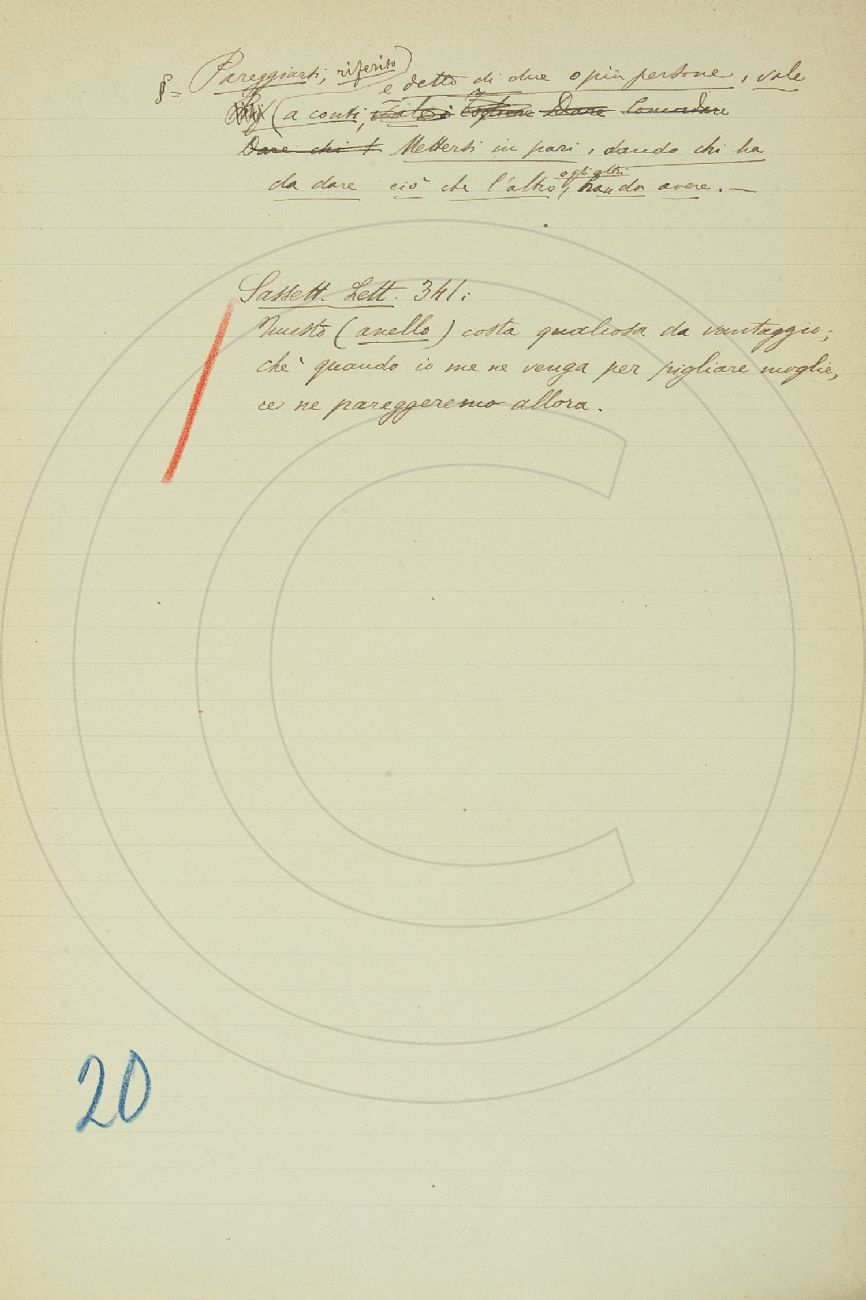 §= Pareggiarsi, riferito)
e detto di due o più persone, vale
(a conti, Dare Concordare
Dare chi t Mettersi in pari, dando chi ha
da dare ciò che l'altro, o gli altri hanno da avere. —
Sassett. Lett. 341:
Questo (anello) costa qualcosa da vantaggio;
chè quando io me ne venga per pigliare moglie,
ce ne pareggeremo allora.
20